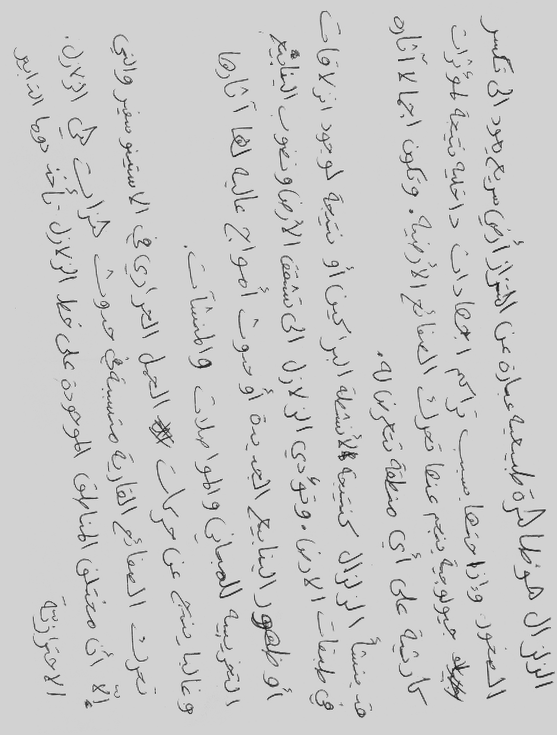 الزلزال هو ظاهرة طبيعية عبارة عن اهتزاز أرضي سريع يعود الى تكسر
الصخور وإزاحتها بسبب تراكم اجهادات داخلية نتيجة لمؤثرات
جيولوجية ينجم عنها تحرك الصفائح الأرضية. وتكون اجمالا آثاره
كارثية على أي منطقة تتعرض له.
قد ينشأ الزلزال كنتيجة لأنشطة البراكين أو نتيجة لوجود انزلاقات
في طبقات الارض. وتؤدي الزلازل الى تشقق الأرض ونضوب الينابيع
أو ظهور الينابيع الجديدة أو حدوث أمواج عالية لها آثارها
التخريبية للمباني والمواصلات والمنشآت.
وغالبا ينتج عن حركات الحمل الحراري في الاستينوسفير والتي
تحرك الصفائح القارية متسببة في حدوث هزات هي الزلازل.
إلا أن مختلف المناطق الموجودة على خط الزلازل تأخذ دوما التدابير
الاحترازية